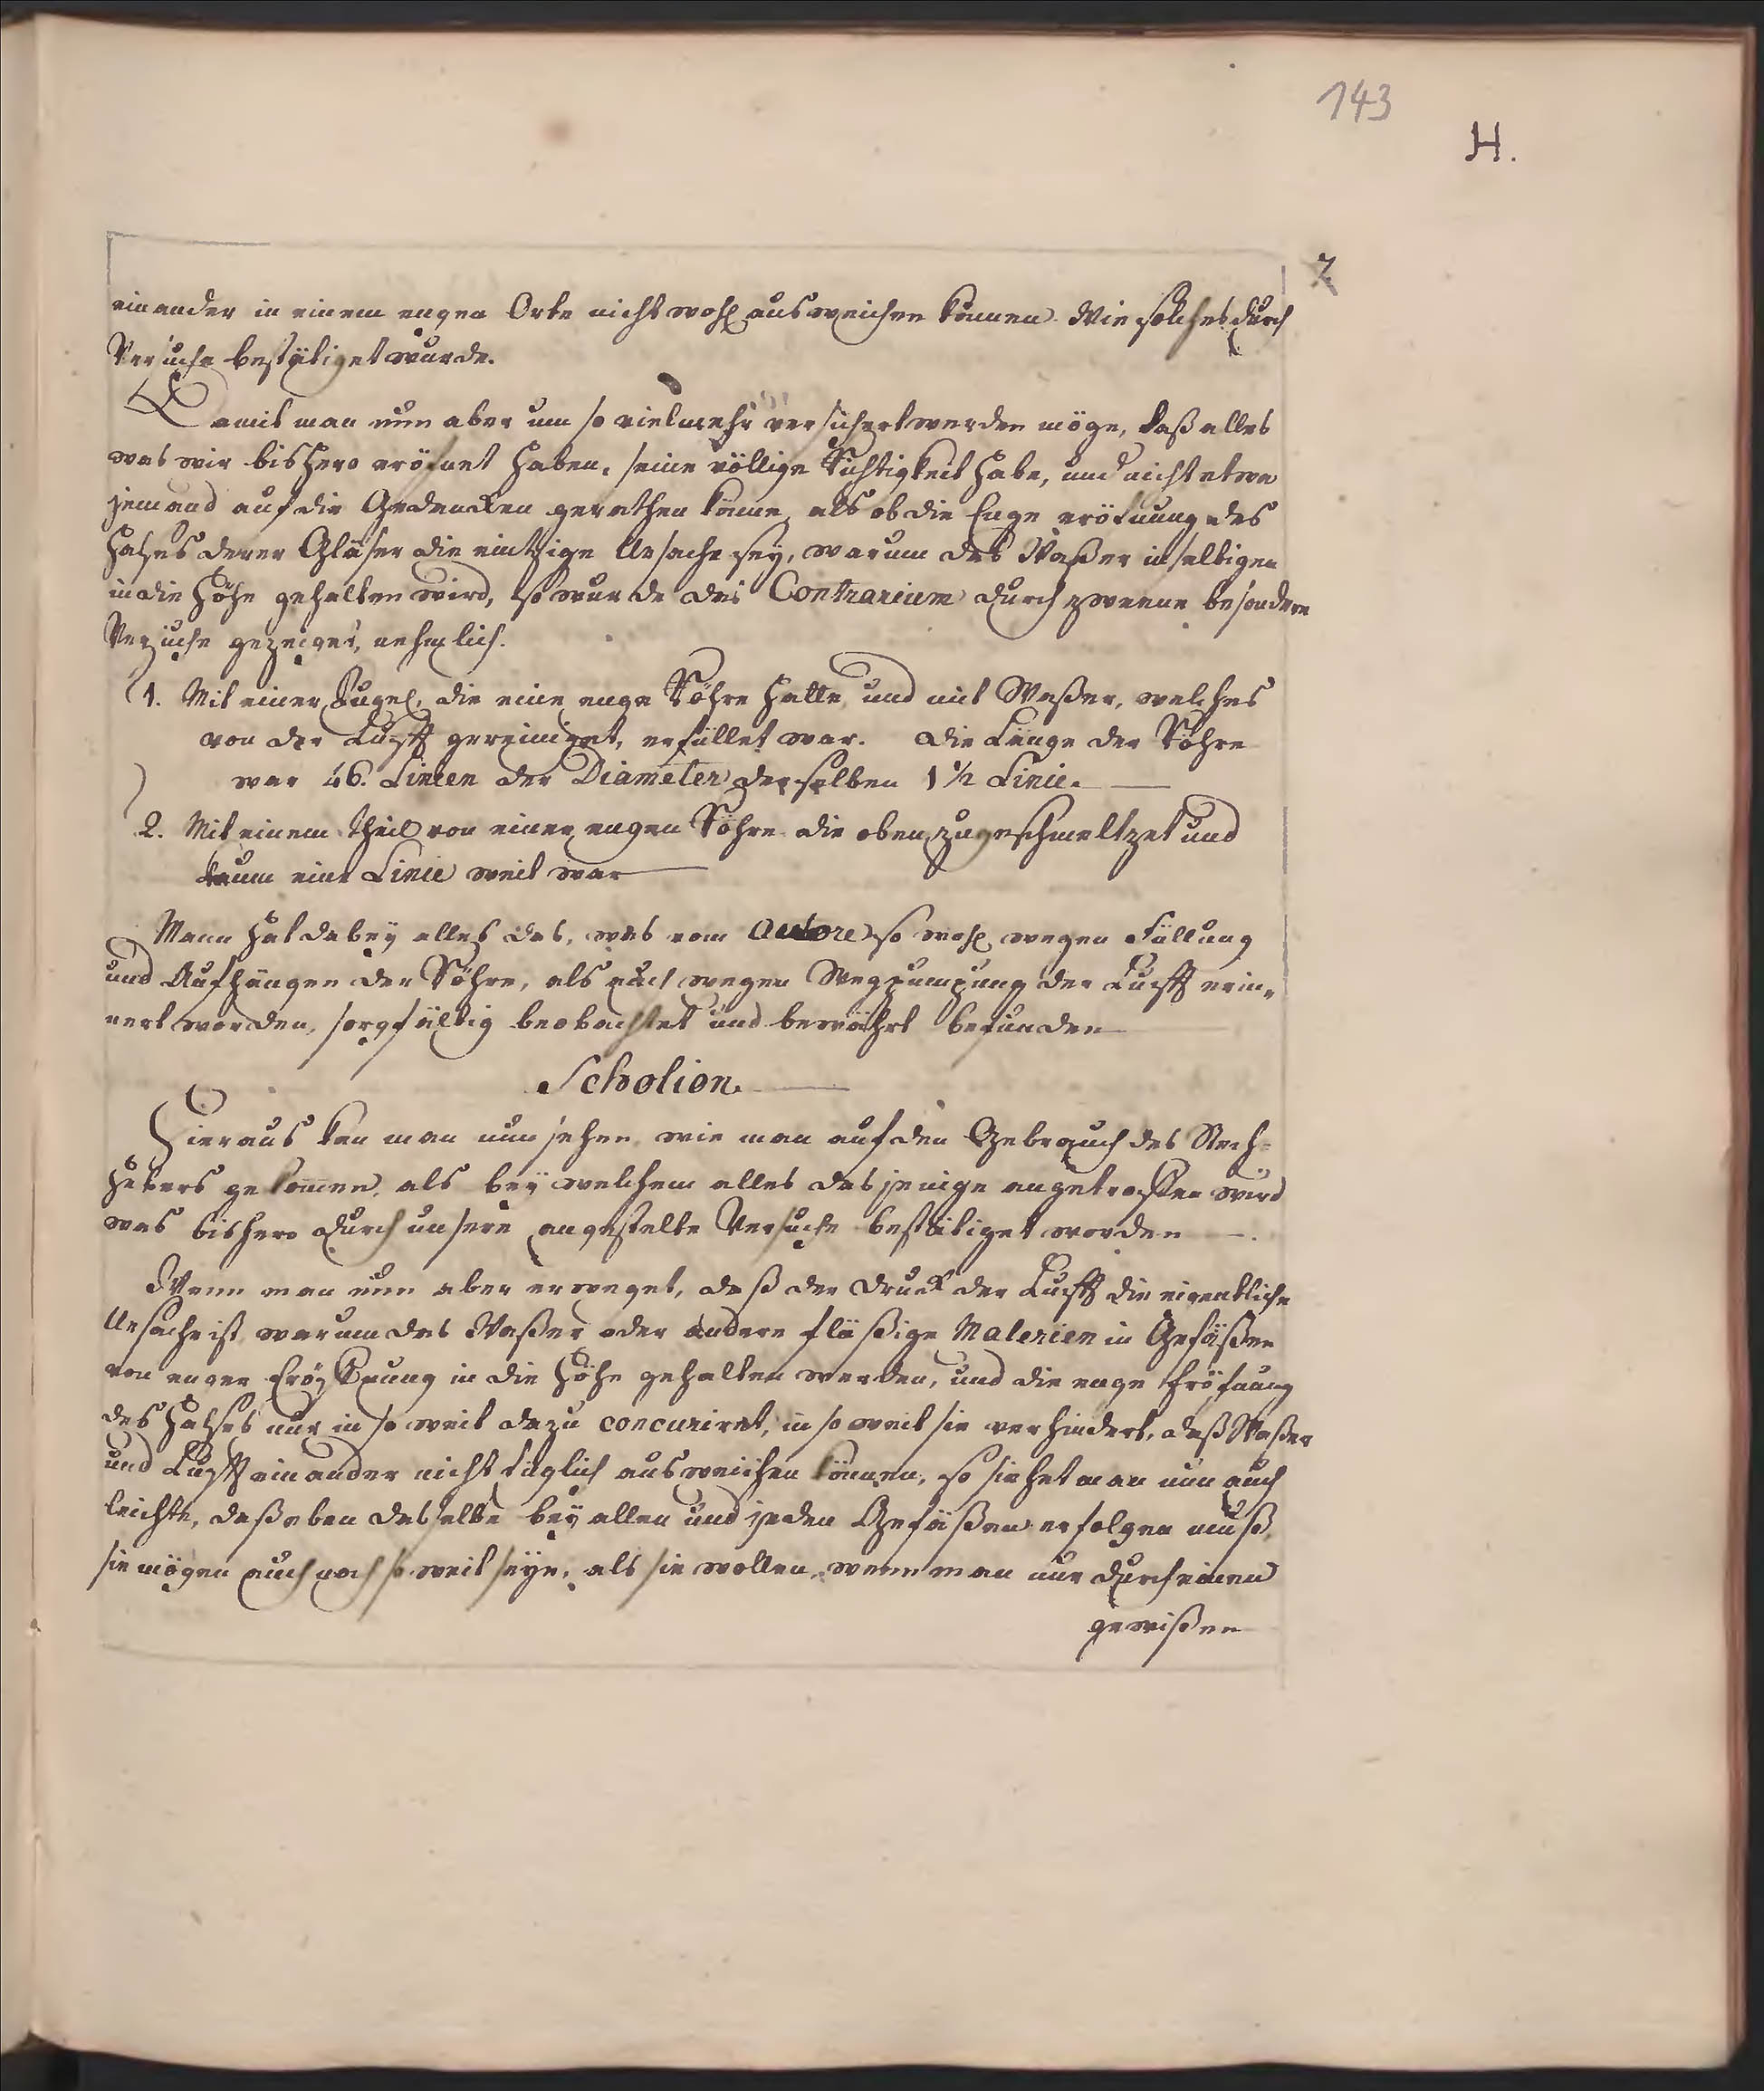 143
H.
7
einander in einem engen Orte nicht wohl ausweichen können. Wie solches durch
Versuche bestätiget wurde.
Damit man nun aber um so vielmehr versichert werden möge, daß alles
was wir bishero eröfnet haben, seine völlige Richtigkeit habe, und nicht etwa
jemand auf die Gedencken gerathen könne, als ob die Enge eröfnung des
Halses derer Gläser die eintzige Ursache sey, warum das Waßer in selbigen
in die Höhe gehalten wird, so wurde das Contrarium durch zweene besondere
Versuche gezeiget, nehmlich.
1. Mit einer Kugel, die eine enge Röhre hatte, und mit Waßer, welches
von der Lufft gereiniget, erfüllet war. Die Länge der Röhre
war 46. Linien der Diameter derselben 1 1/2 Linie.
2. Mit einem theil von einer engen Röhre die oben zugeschmeltzet und
kaum eine Linie weit war
Mann hat dabey alles das, was vom Autore so wohl wegen Füllung
und Aufhängen der Röhre, als auch wegen Wegpumpung der Lufft erin-
nert worden, sorgfältig beobachtet und bewährt befunden
Scholion.
Hieraus kan man nun sehen, wie man auf den Gebrauch des Stech-
Hebers gekom̅en, als bey welchem alles dasjenige angetroffen wird
was bishero durch unsere angestelte Versuche bestätiget worden.
Wenn man nun aber erweget, daß der Druck der Lufft die eigentliche
Ursache ist, warum das Waßer oder andere flüßige Materien in Gefäßen
von enger Eröffnung in die Höhe gehalten werden, und die enge Eröfnung
des Halses nur in so weit dazu concuriret, in so weit sie verhindert, daß Waßer
und Lufft einander nicht füglich ausweichen können, so siehet man nun auch
leichte, daß eben dasselbe bey allen und jeden Gefäßen erfolgen muß,
sie mögen auch noch so weit seyn, als sie wollen, wenn man nur durch einen
gewißen